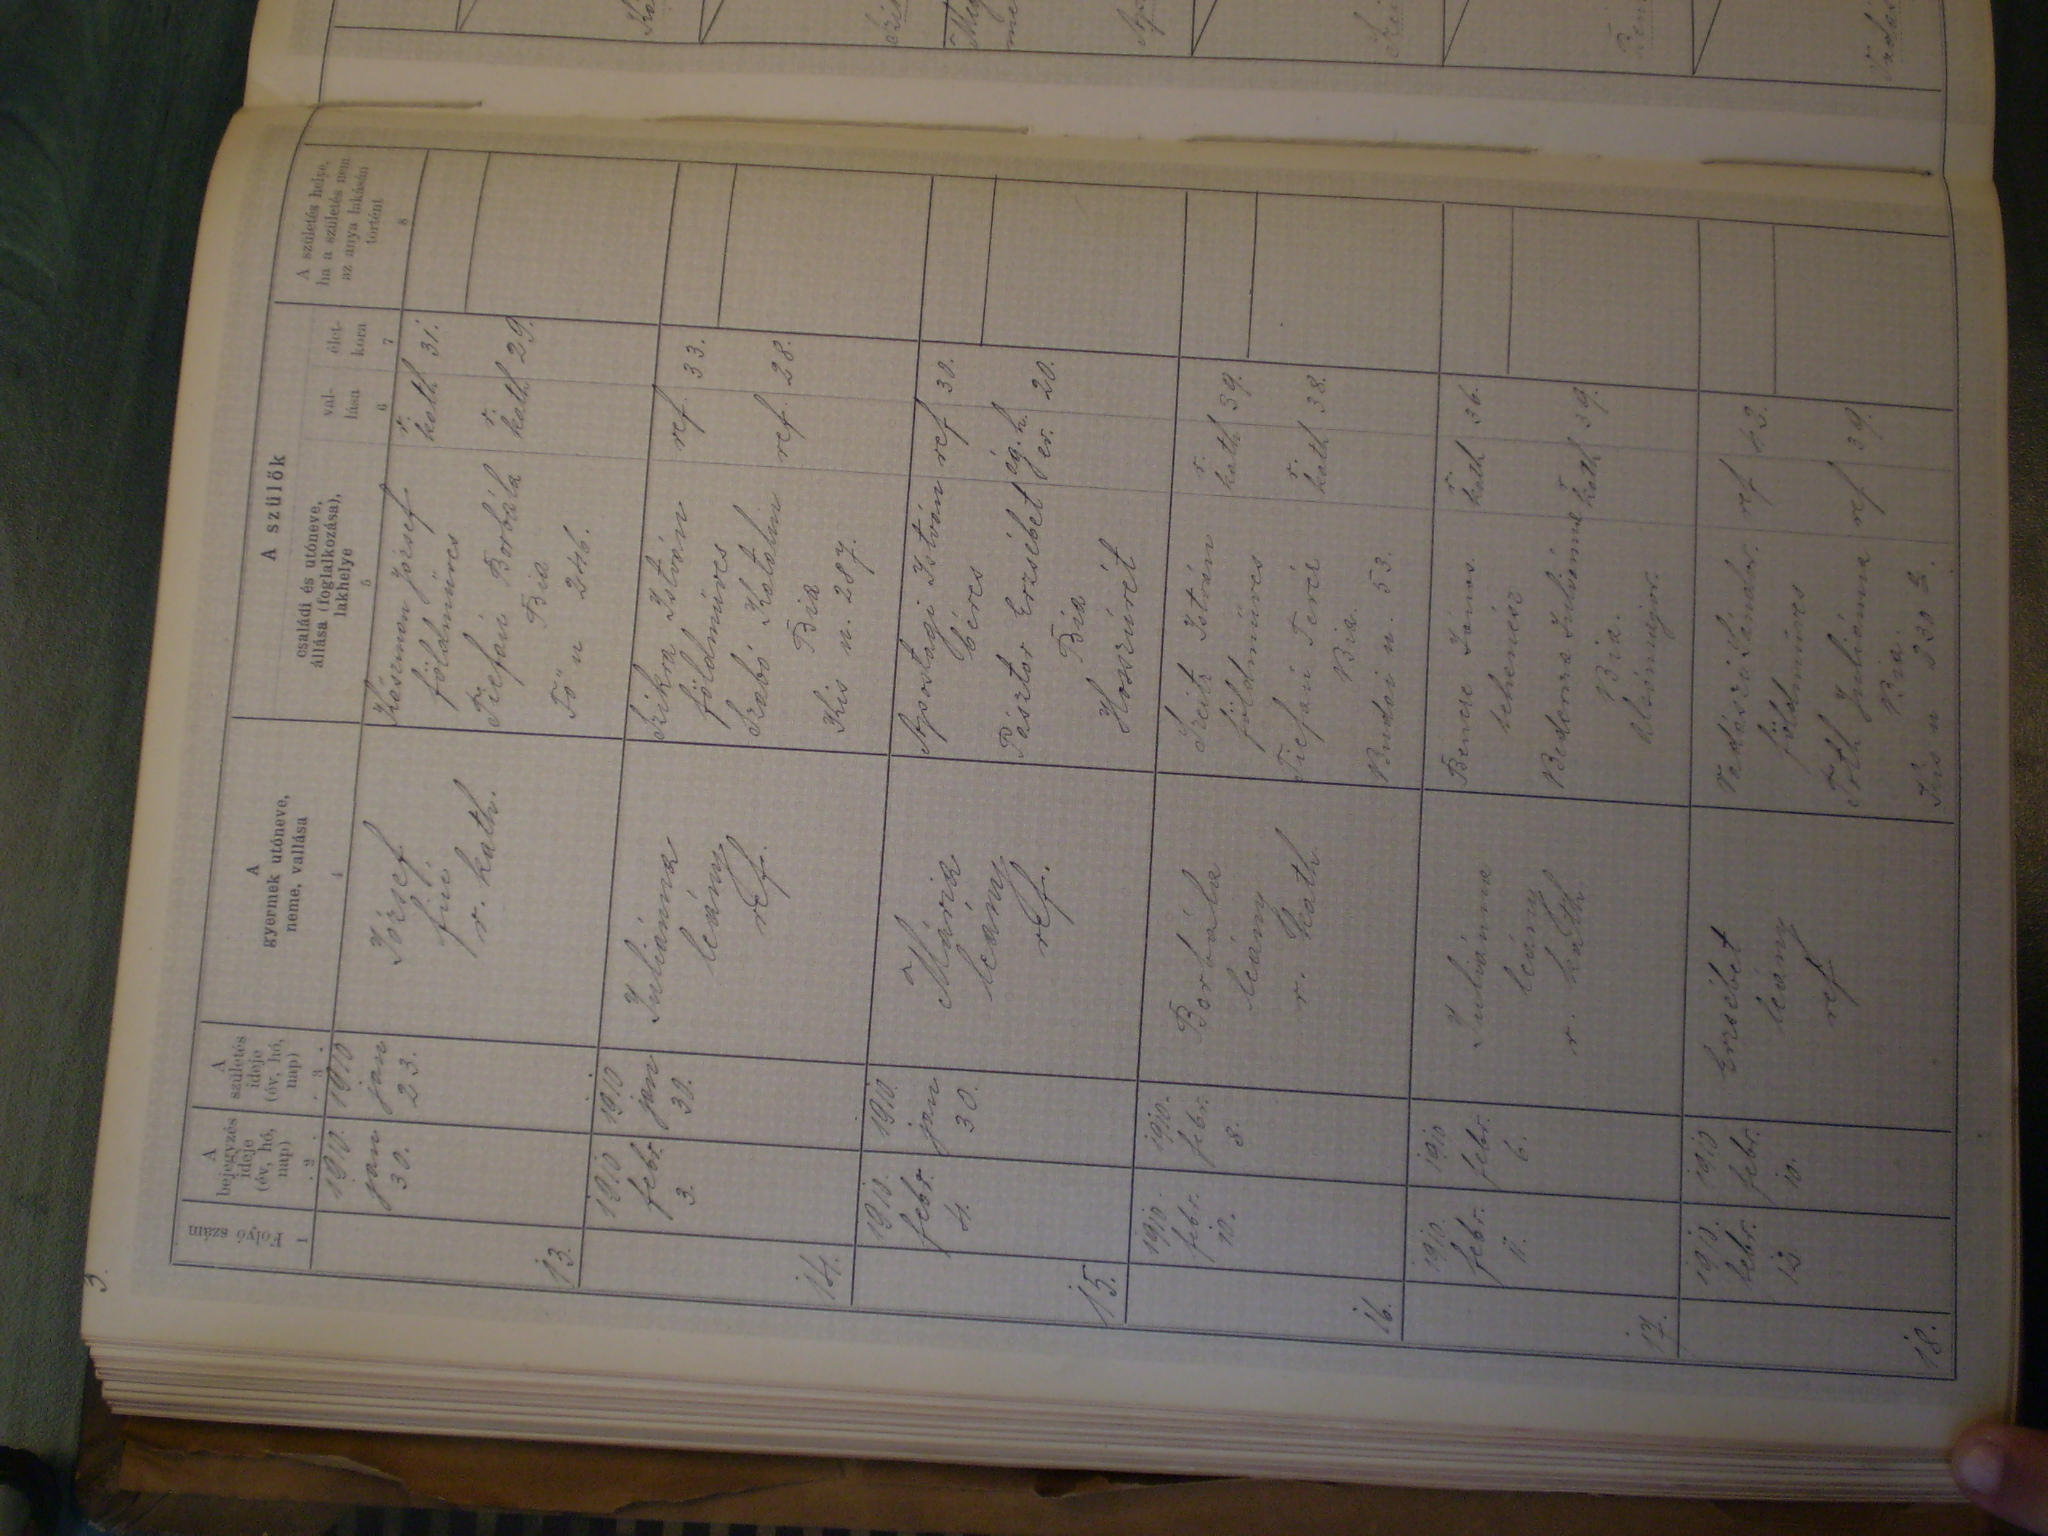 3.
1
Folyó szám
2
A
bejegyzés
ideje
(év, hó,
nap)
3
A
születés
ideje
(év, hó,
nap)
4
A
gyermek utóneve,
neme, vallása
A szülők
5
családi és utóneve,
állása (foglalkozása),
lakhelye
6
val-
lása
7
élet-
kora
8
A születés helye,
ha a születés nem
az anya lakásán
történt
13.
1910.
jan
30.
1910
jan
23.
József
fiú.
r. kath.
József
földmüves
r.
kath 31.
Tiefani Borbála
r.
kath 29.
Bia
Fő u 246.
14.
1910
febr.
3.
1910
jan
30.
Juliánna
leány
ref.
Szikra István
ref. 33.
földmüves
Szabó Katalin
ref. 28.
Bia
Kis u. 287.
15.
1910.
febr.
4.
1910.
jan
30.
Mária
leány
ref.
Apostagi István
ref 30.
béres
Pásztor Erzsébet
ág. h.
ev. 20.
Bia
Hosszúrét
16.
1910.
febr.
10.
1910.
febr.
8.
Borbála
leány
r. kath.
Szeitz István
r.
kath 39.
földmüves
Tiefani Teréz
r.
kath 38.
Bia.
Budai u. 53.
17.
1910.
febr.
11.
1910
febr.
6.
Juliánna
leány
r. kath
Bencze János.
r.
kath 36.
tehenész
Juliánna
r.
kath 39.
Bia.
Alsómajor.
18.
1910.
febr.
12
1910
febr.
10.
Erzsébet
leány
ref
Vadászi Sándor.
ref 43.
földmüves
Tóth Juliánna
ref 39.
Bia.
Kis u